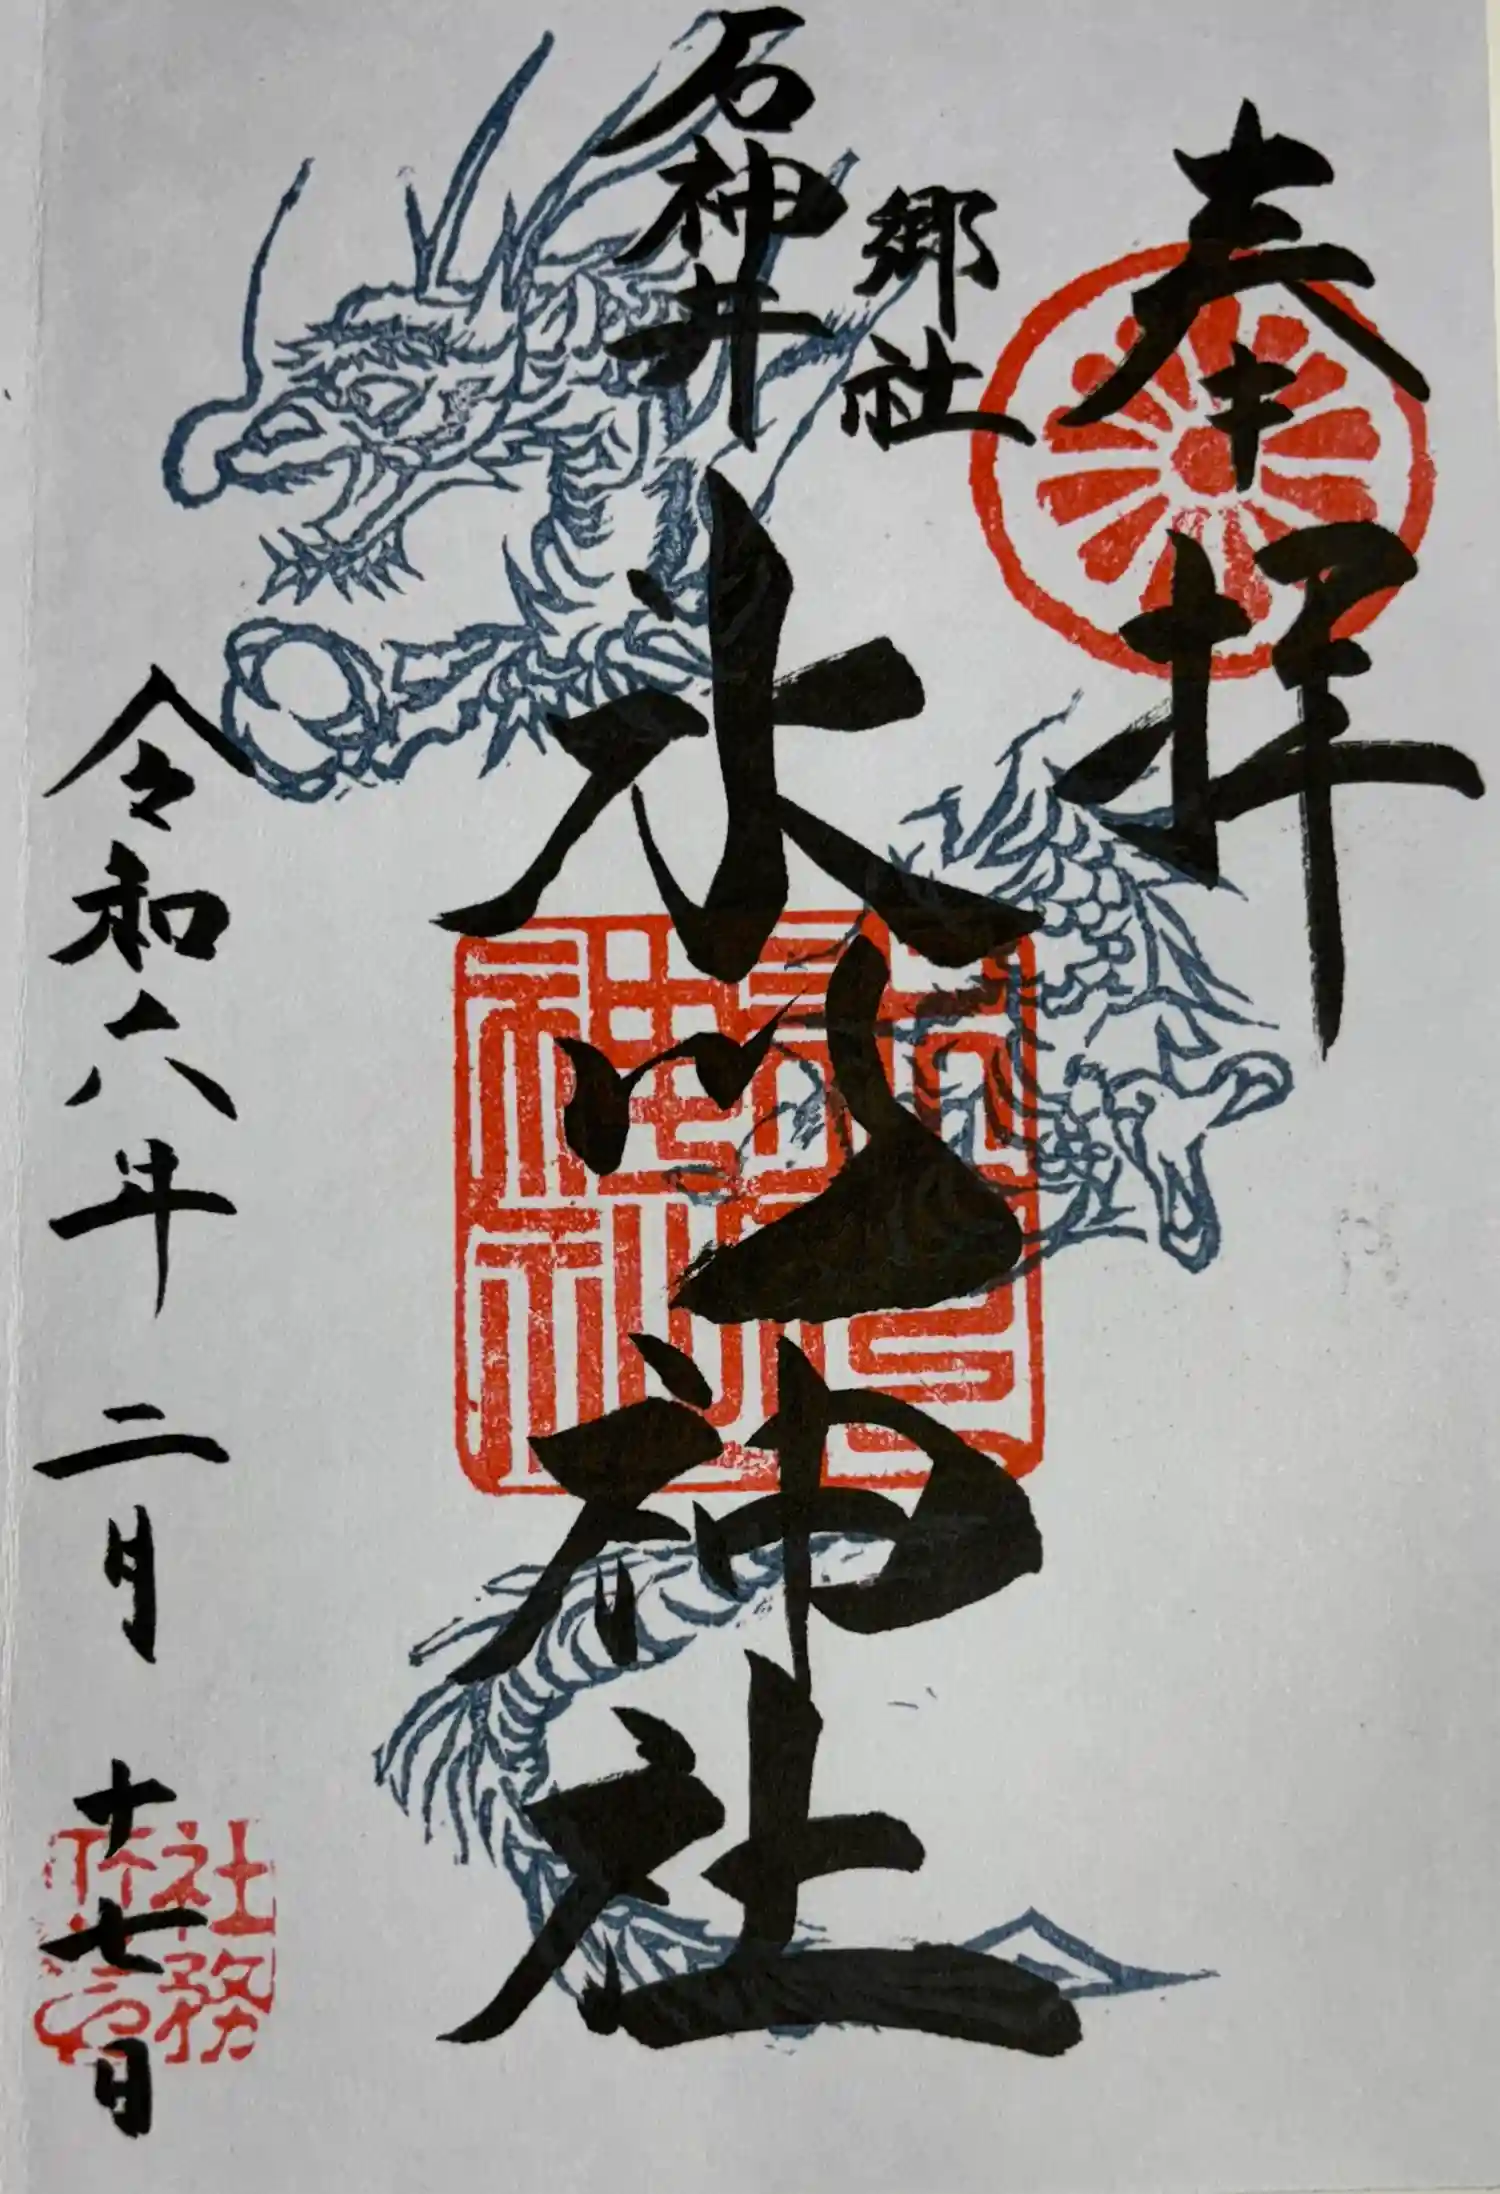 奉拝
郷社
石神井
氷川神社
令和六年二月十七日
社務